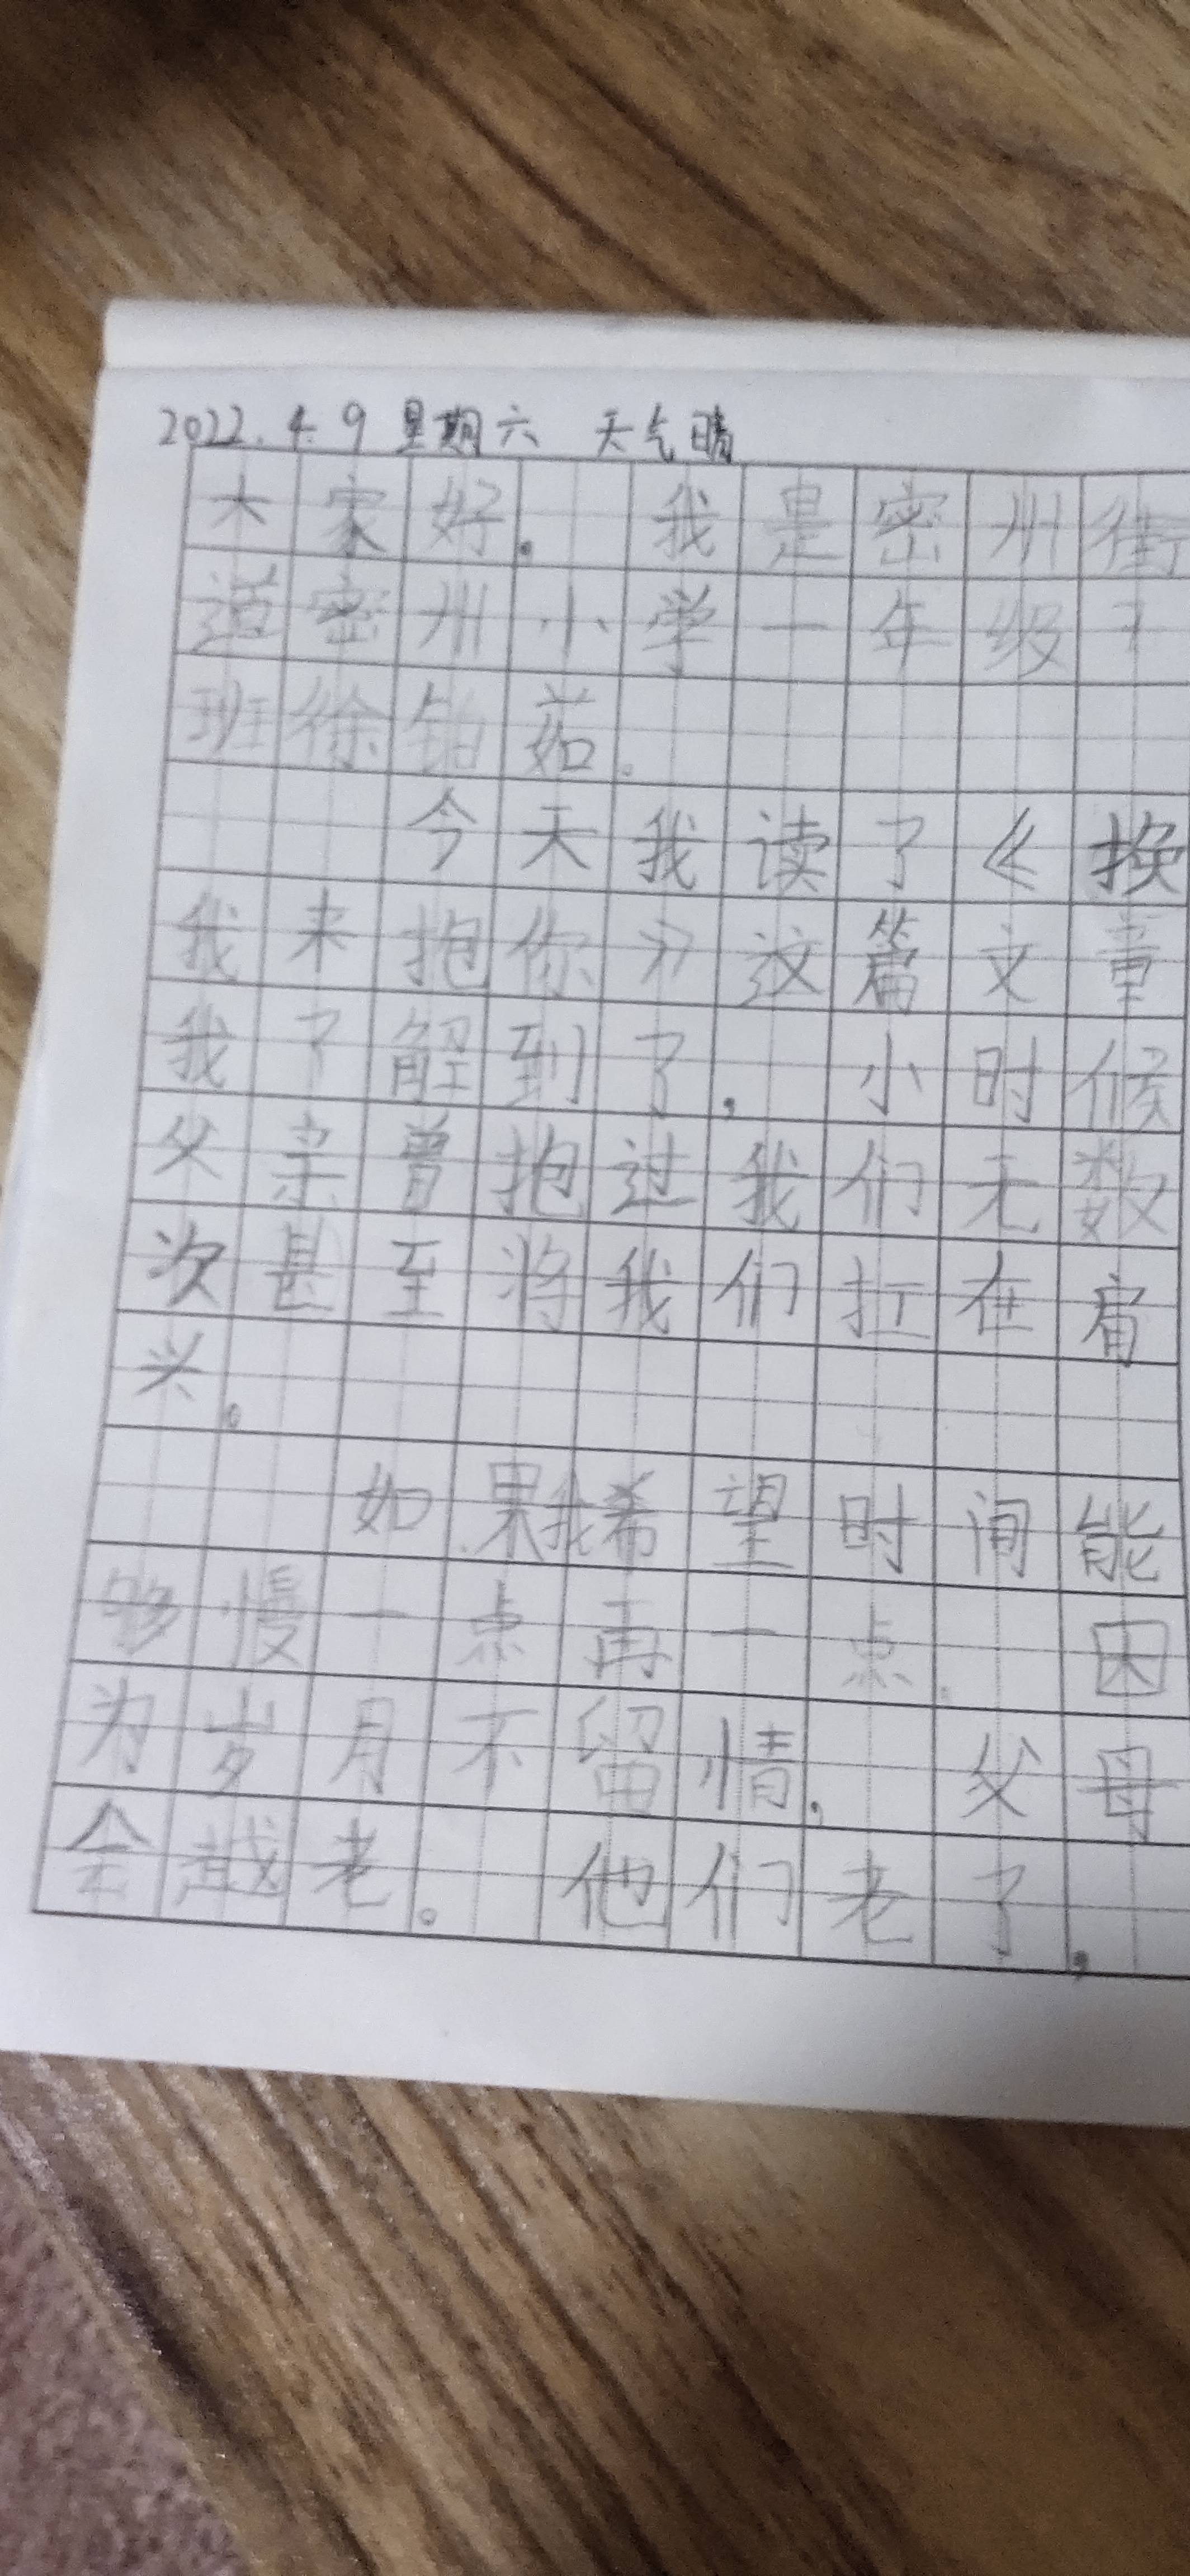 2022.4.9 星期六 天气晴
大家好。我是密州街
道密州小学一年级十
班徐铂茹。
今天我读了《换
我来抱你》这篇文章
我了解到了,小时候
父亲曾抱过我们无数
次甚至将我们扛在肩
头。
如果我希望时间能
够慢一点再一点.因
为岁月不留情,父母
会越老。他们老了,